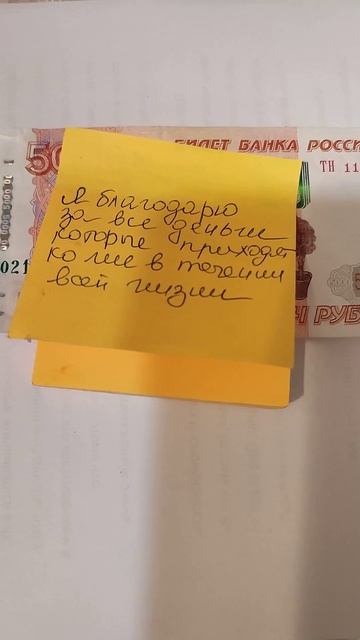 50
БИЛЕТ БАНКА РОССИ
ТН 11
Я благодарю
за все деньги
которые приходят
ко мне в течении
всей жизни
021
РУБ